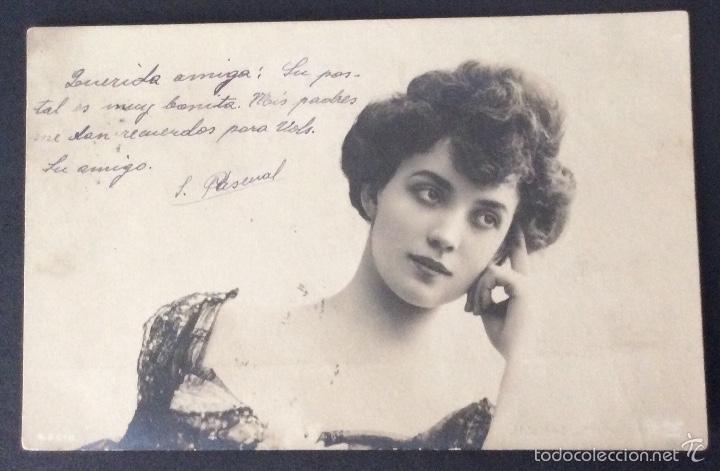 Querida amiga: Su pos-
tal es muy bonita. Mis padres
me dan recuerdos para Vds.
Su amigo.
S. Pascual
todocoleccion